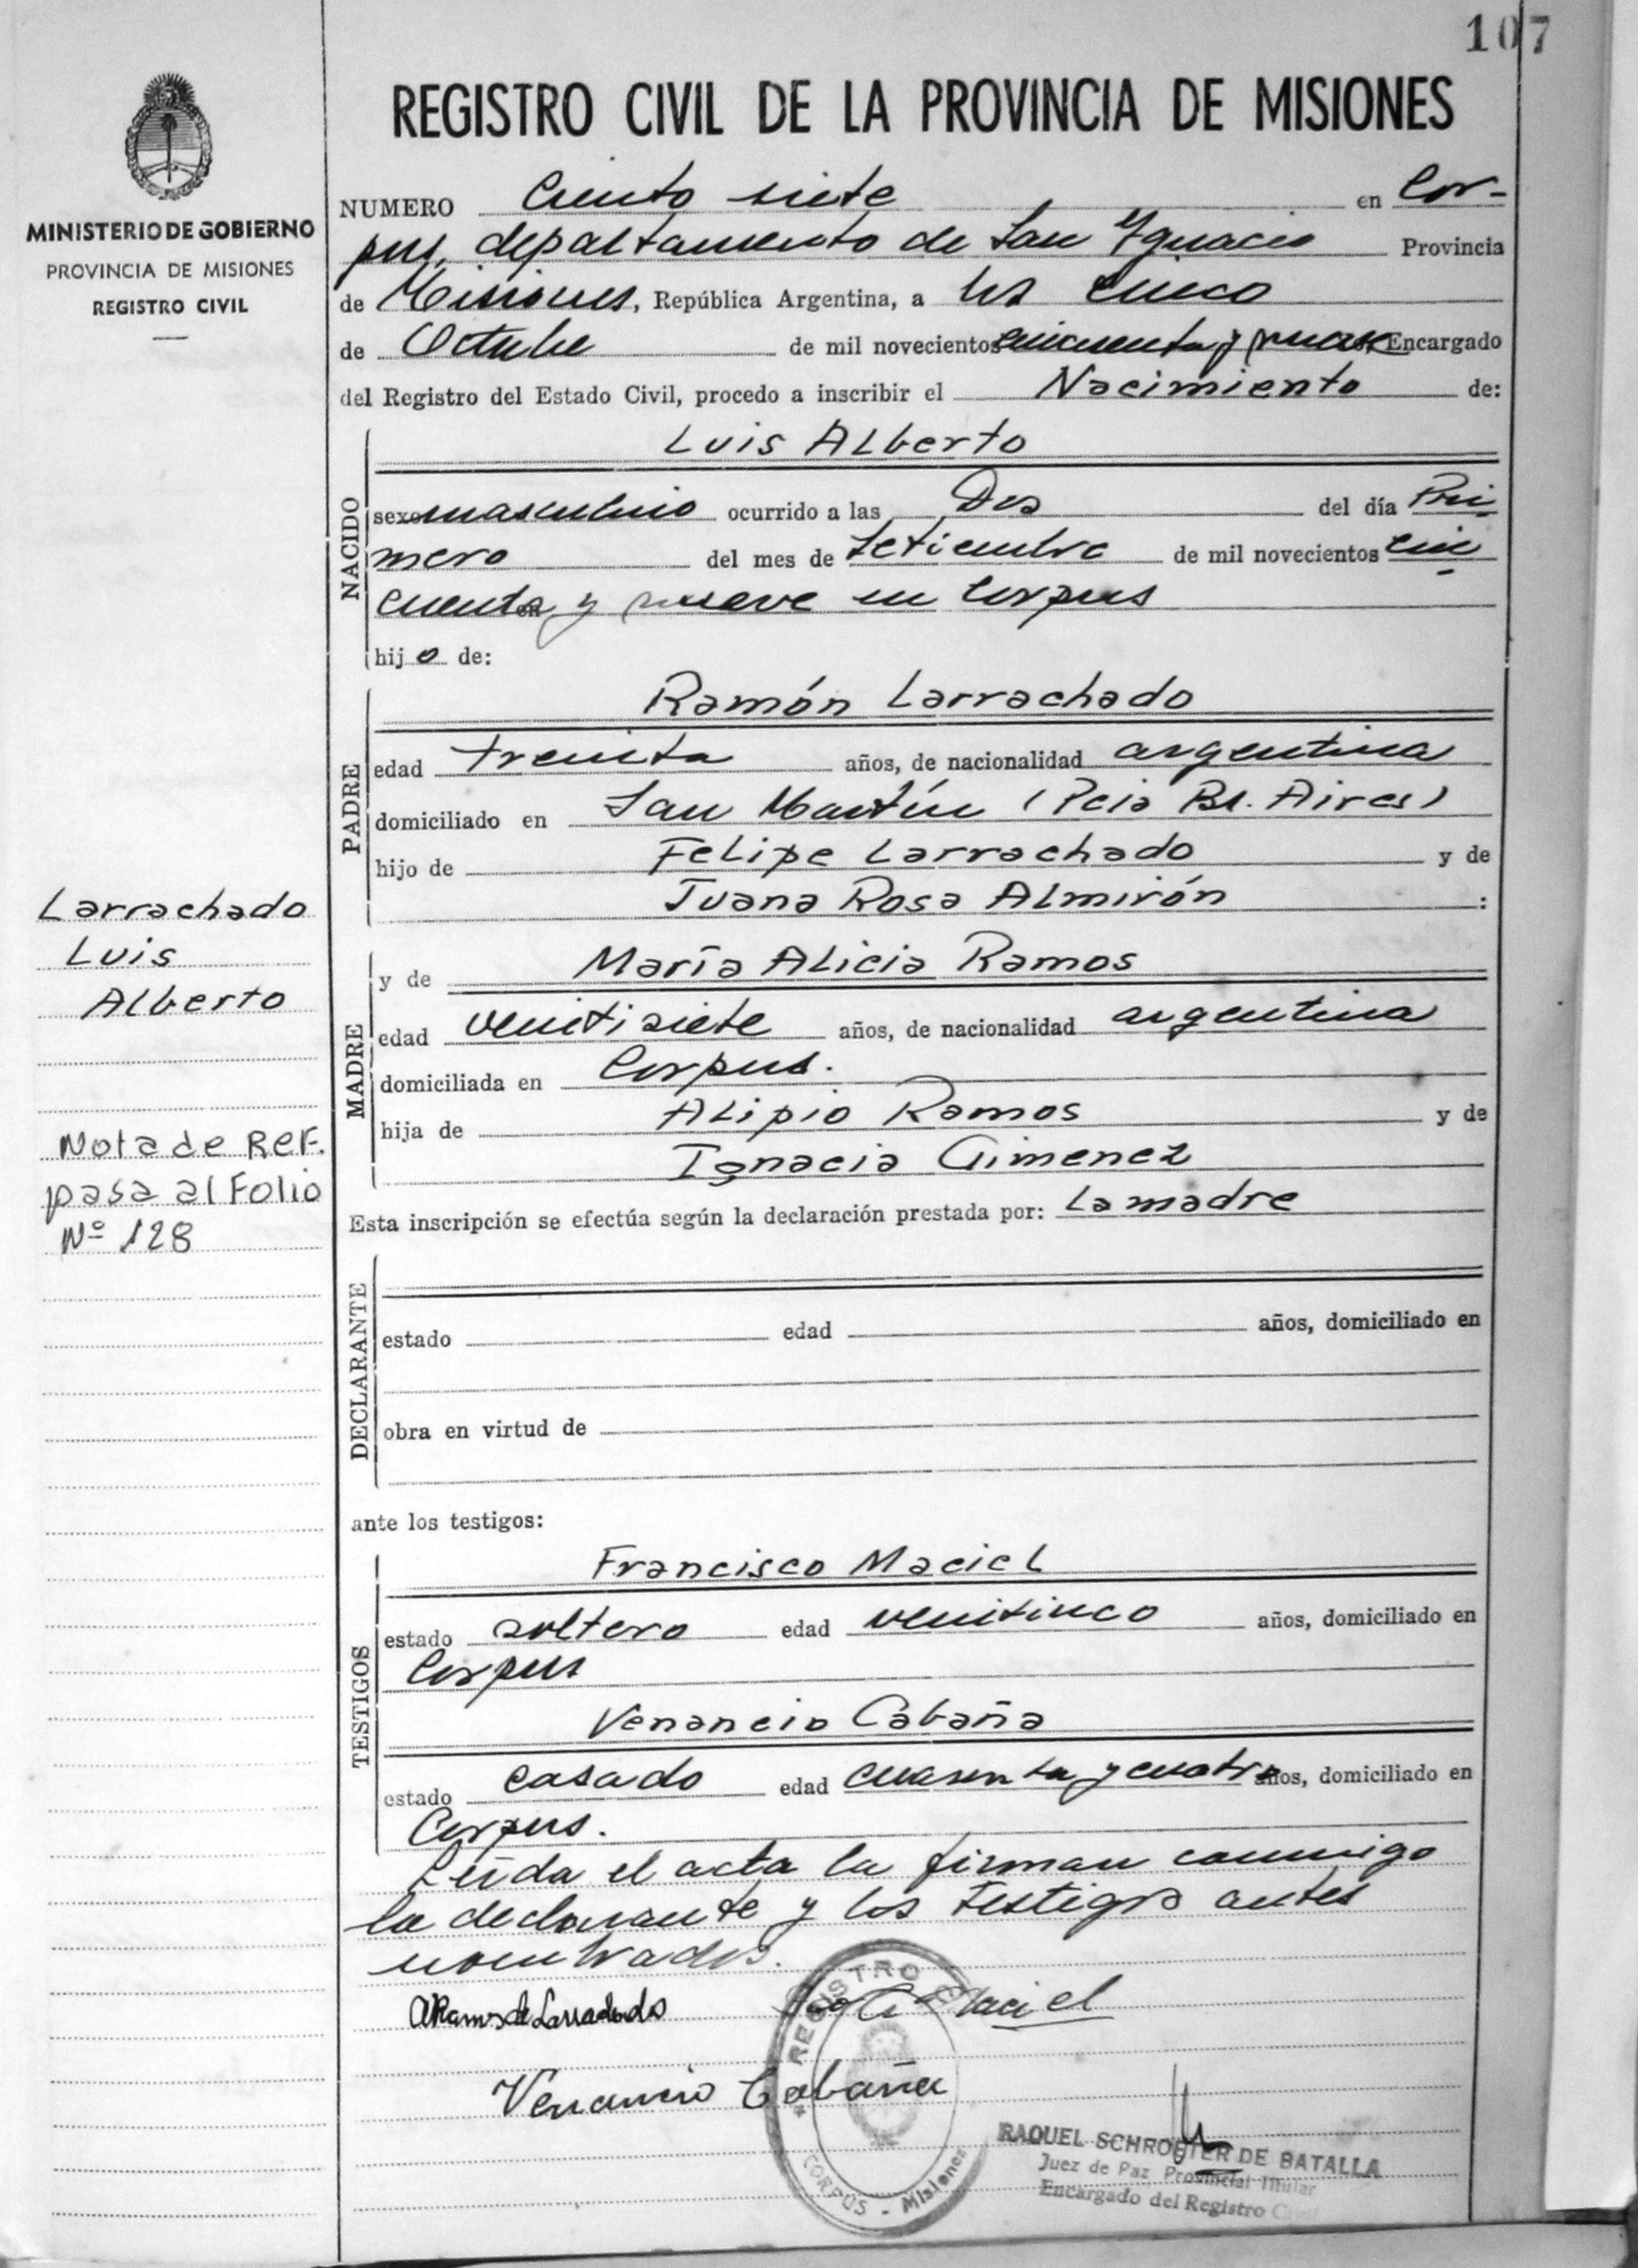 107
REGISTRO CIVIL DE LA PROVINCIA DE MISIONES
MINISTERIO DE GOBIERNO
PROVINCIA DE MISIONES
REGISTRO CIVIL
NUMERO Ciento siete en Cor-
pus, departamento de San Ignacio Provincia
de Misiones, República Argentina, a los cinco
de Octubre de mil novecientos cincuenta y nueve Encargado
del Registro del Estado Civil, procedo a inscribir el Nacimiento de:
NACIDO
Luis Alberto
sexo masculino ocurrido a las Dos del día Pri
mero del mes de Setiembre de mil novecientos cin
cuenta y nueve en Corpus
hijo de:
PADRE
Ramón Larrachado
edad treinta años, de nacionalidad argentina
domiciliado en San Martín (Pcia Bs. Aires)
hijo de Felipe Larrachado y de
Juana Rosa Almirón :
Larrachado
Luis
Alberto
MADRE
y de María Alicia Ramos
edad veintisiete años, de nacionalidad argentina
domiciliada en Corpus.
hija de Alipio Ramos y de
Ignacia Gimenez
Nota de Ref.
pasa al Folio
Nº 128
Esta inscripción se efectúa según la declaración prestada por: La madre
DECLARANTE
estado edad años, domiciliado en
obra en virtud de
ante los testigos:
TESTIGOS
Francisco Maciel
estado soltero edad veinticinco años, domiciliado en
Corpus
Venancio Cabaña
estado casado edad cuarenta y cuatro años, domiciliado en
Corpus.
Leída el acta la firman conmigo
la declarante y los testigos antes
nombrados.
ARamos de Larrachado
Maciel
Venancio Cabaña
REGISTRO
CORPUS - Misiones
RAQUEL SCHROETER DE BATALLA
Juez de Paz Provincial Titular
Encargado del Registro Civil